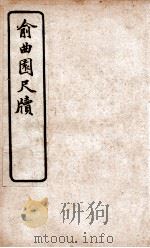 俞曲園尺牘
www.mtoou.info